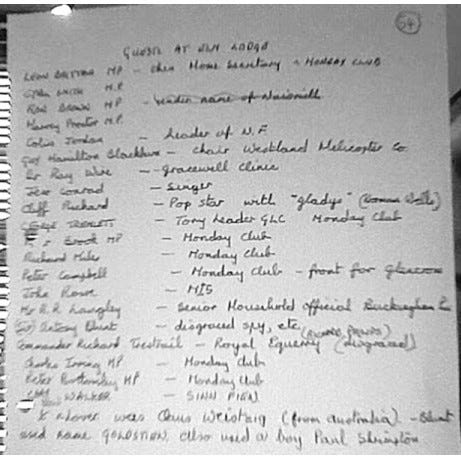 54
GUESTS AT ELM LODGE
LEON BRITTAN MP - then Home Secretary MONDAY CLUB
CYRIL SMITH M.P.
RON BROWN MP - name of Naismith
Harvey Proctor M.P.
Colin Jordan - Leader of N.F
Guy Hamilton Blackburn - Chair Westland Helicopter Co
Dr Ray Wire - Gracewell Clinic
Jess Conrad - Singer
Cliff Richard - Pop star with "Gladys"
GEORGE TREMLETT - Tory Leader GLC Monday Club
BROOK MP - Monday Club
Richard Miles - Monday Club
Peter Campbell - Monday Club - front for
John Rowe - MI5
Mr R.R. Langley - Senior Household Official Buckingham
Antony Blunt - disgraced spy, etc
Commander Richard Trestrail - Royal Equerry (disgraced)
Charles Irving MP - Monday Club
Peter Bottomley MP - Monday Club
WALKER - SINN FIEN
(from Australia). - Blunt
used name GOLDSTIEN, also used a boy Paul